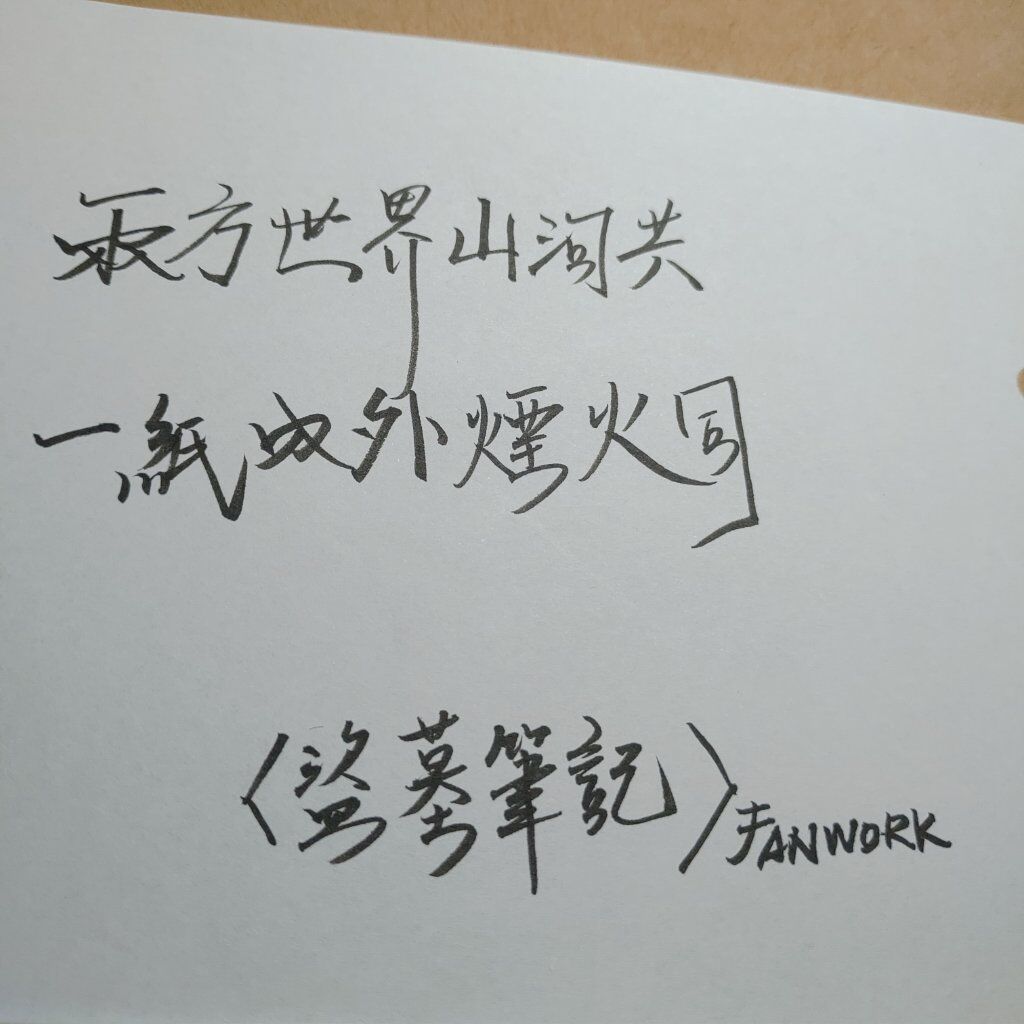 兩方世界山河共
一紙內外煙火同
〈盜墓筆記〉FANWORK